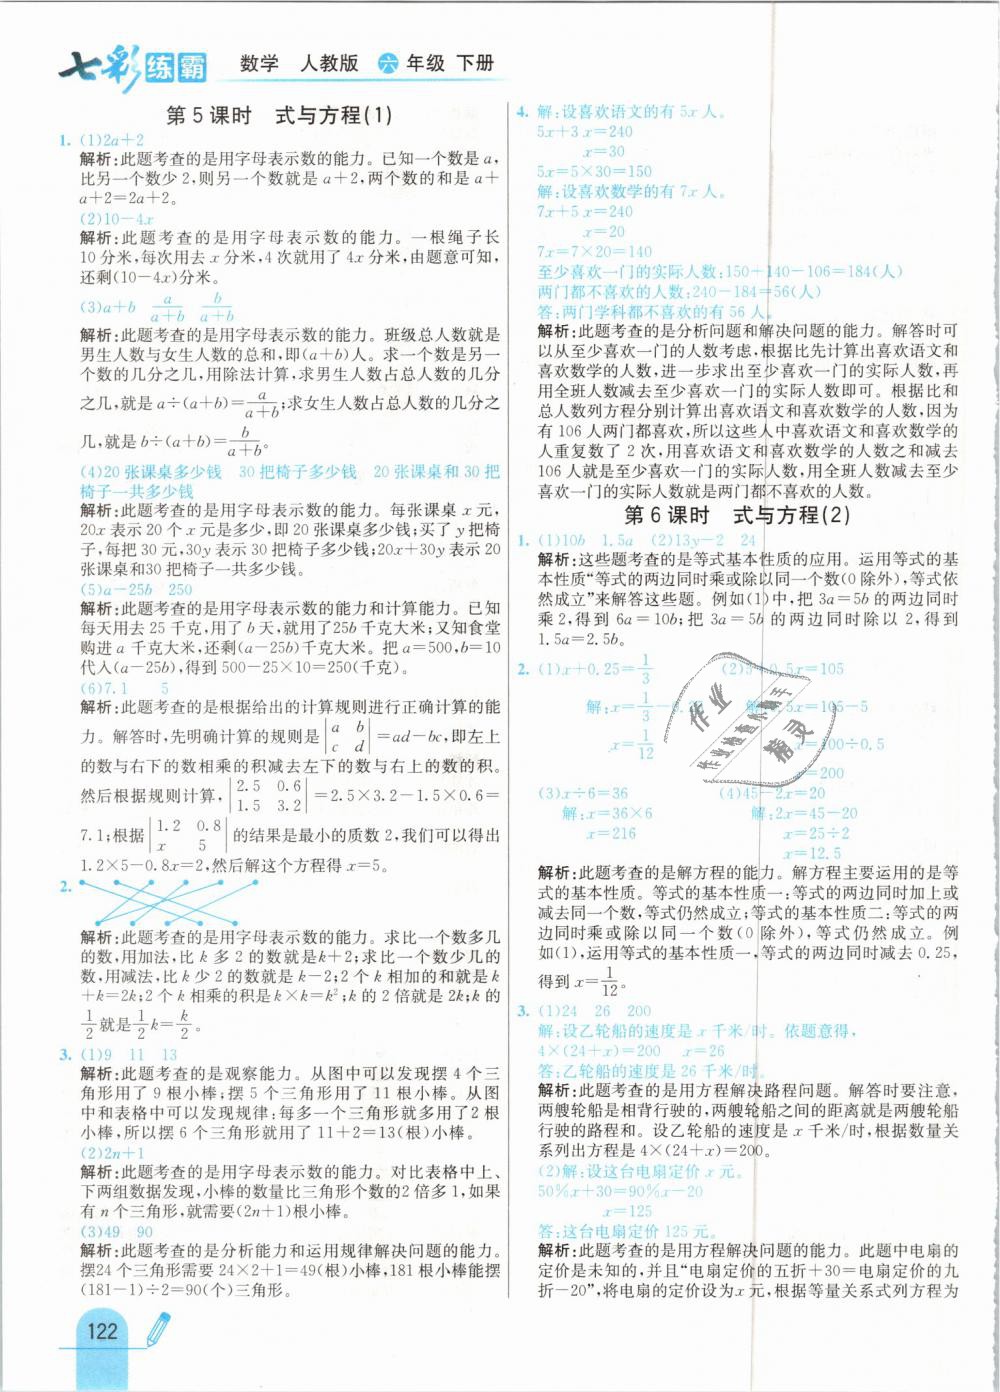 七彩练霸 数学 人教版 六年级 下册
第5课时 式与方程(1)
1. (1)2a+2
解析:此题考查的是用字母表示数的能力。已知一个数是a,
比另一个数少2,则另一个数就是a+2,两个数的和是a+
a+2=2a+2。
(2)10-4x
解析:此题考查的是用字母表示数的能力。一根绳子长
10分米,每次用去x分米,4次就用了4x分米,由题意可知,
还剩(10-4x)分米。
(3)a+b a/(a+b) b/(a+b)
解析:此题考查的是用字母表示数的能力。班级总人数就是
男生人数与女生人数的总和,即(a+b)人。求一个数是另一
个数的几分之几,用除法计算,求男生人数占总人数的几分
之几,就是a÷(a+b)=a/(a+b);求女生人数占总人数的几分之
几,就是b÷(a+b)=b/(a+b)。
(4)20张课桌多少钱 30把椅子多少钱 20张课桌和30把
椅子一共多少钱
解析:此题考查的是用字母表示数的能力。每张课桌x元,
20x表示20个x元是多少,即20张课桌多少钱;买了y把椅
子,每把30元,30y表示30把椅子多少钱;20x+30y表示20
张课桌和30把椅子一共多少钱。
(5)a-25b 250
解析:此题考查的是用字母表示数的能力和计算能力。已知
每天用去25千克,用了b天,就用了25b千克大米;又知食堂
购进a千克大米,还剩(a-25b)千克大米。把a=500,b=10
代入(a-25b),得到500-25×10=250(千克)。
(6)7.1 5
解析:此题考查的是根据给出的计算规则进行正确计算的能
力。解答时,先明确计算的规则是|a b; c d|=ad-bc,即左上
的数与右下的数相乘的积减去左下的数与右上的数的积。
然后根据规则计算,|2.5 0.6; 1.5 3.2|=2.5×3.2-1.5×0.6=
7.1;根据|1.2 0.8; x 5|的结果是最小的质数2,我们可以得出
1.2×5-0.8x=2,然后解这个方程得x=5。
2.
解析:此题考查的是用字母表示数的能力。求比一个数多几
的数,用加法,比k多2的数就是k+2;求比一个数少几的
数,用减法,比k少2的数就是k-2;2个k相加的和就是k
+k=2k;2个k相乘的积是k×k=k²;k的2倍就是2k;k的
1/2就是1/2k=k/2。
3. (1)9 11 13
解析:此题考查的是观察能力。从图中可以发现摆4个三
角形用了9根小棒;摆5个三角形用了11根小棒。从图
中和表格中可以发现规律:每多一个三角形就多用了2根
小棒,所以摆6个三角形就用了11+2=13(根)小棒。
(2)2n+1
解析:此题考查的是用字母表示数的能力。对比表格中上、
下两组数据发现,小棒的数量比三角形个数的2倍多1,如果
有n个三角形,就需要(2n+1)根小棒。
(3)49 90
解析:此题考查的是分析能力和运用规律解决问题的能力。
摆24个三角形需要24×2+1=49(根)小棒,181根小棒能摆
(181-1)÷2=90(个)三角形。
4. 解:设喜欢语文的有5x人。
5x+3x=240
x=30
5x=5×30=150
解:设喜欢数学的有7x人。
7x+5x=240
x=20
7x=7×20=140
至少喜欢一门的实际人数:150+140-106=184(人)
两门都不喜欢的人数:240-184=56(人)
答:两门学科都不喜欢的有56人。
解析:此题考查的是分析问题和解决问题的能力。解答时可
以从至少喜欢一门的人数考虑,根据比先计算出喜欢语文和
喜欢数学的人数,进一步求出至少喜欢一门的实际人数,再
用全班人数减去至少喜欢一门的实际人数即可。根据比和
总人数列方程分别计算出喜欢语文和喜欢数学的人数,因为
有106人两门都喜欢,所以这些人中喜欢语文和喜欢数学的
人重复数了2次,用喜欢语文和喜欢数学的人数之和减去
106人就是至少喜欢一门的实际人数,用全班人数减去至少
喜欢一门的实际人数就是两门都不喜欢的人数。
第6课时 式与方程(2)
1. (1)10b 1.5a (2)13y-2 24
解析:这些题考查的是等式基本性质的应用。运用等式的基
本性质“等式的两边同时乘或除以同一个数(0除外),等式依
然成立”来解答这些题。例如(1)中,把3a=5b的两边同时
乘2,得到6a=10b;把3a=5b的两边同时除以2,得到
1.5a=2.5b。
2. (1)x+0.25=1/3 (2)5+0.5x=105
解:x=1/3- 解: 5x=105-5
x=1/12 x=100÷0.5
x=200
(3)x÷6=36 (4)45-2x=20
解:x=36×6 解:2x=45-20
x=216 x=25÷2
x=12.5
解析:此题考查的是解方程的能力。解方程主要运用的是等
式的基本性质。等式的基本性质一:等式的两边同时加上或
减去同一个数,等式仍然成立;等式的基本性质二:等式的两
边同时乘或除以同一个数(0除外),等式仍然成立。例
如(1),运用等式的基本性质一,等式的两边同时减去0.25,
得到x=1/12。
3. (1)24 26 200
解:设乙轮船的速度是x千米/时。依题意得,
4×(24+x)=200 x=26
答:乙轮船的速度是26千米/时。
解析:此题考查的是用方程解决路程问题。解答时要注意,
两艘轮船是相背行驶的,两艘轮船之间的距离就是两艘轮船
行驶的路程和。设乙轮船的速度是x千米/时,根据数量关
系列出方程是4×(24+x)=200。
(2)解:设这台电扇定价x元。
50%x+30=90%x-20
x=125
答:这台电扇定价125元。
解析:此题考查的是用方程解决问题的能力。此题中电扇的
定价是未知的,并且“电扇定价的五折+30=电扇定价的九
折-20”,将电扇的定价设为x元,根据等量关系式列方程为
作业
作业检查小助手
精灵
122